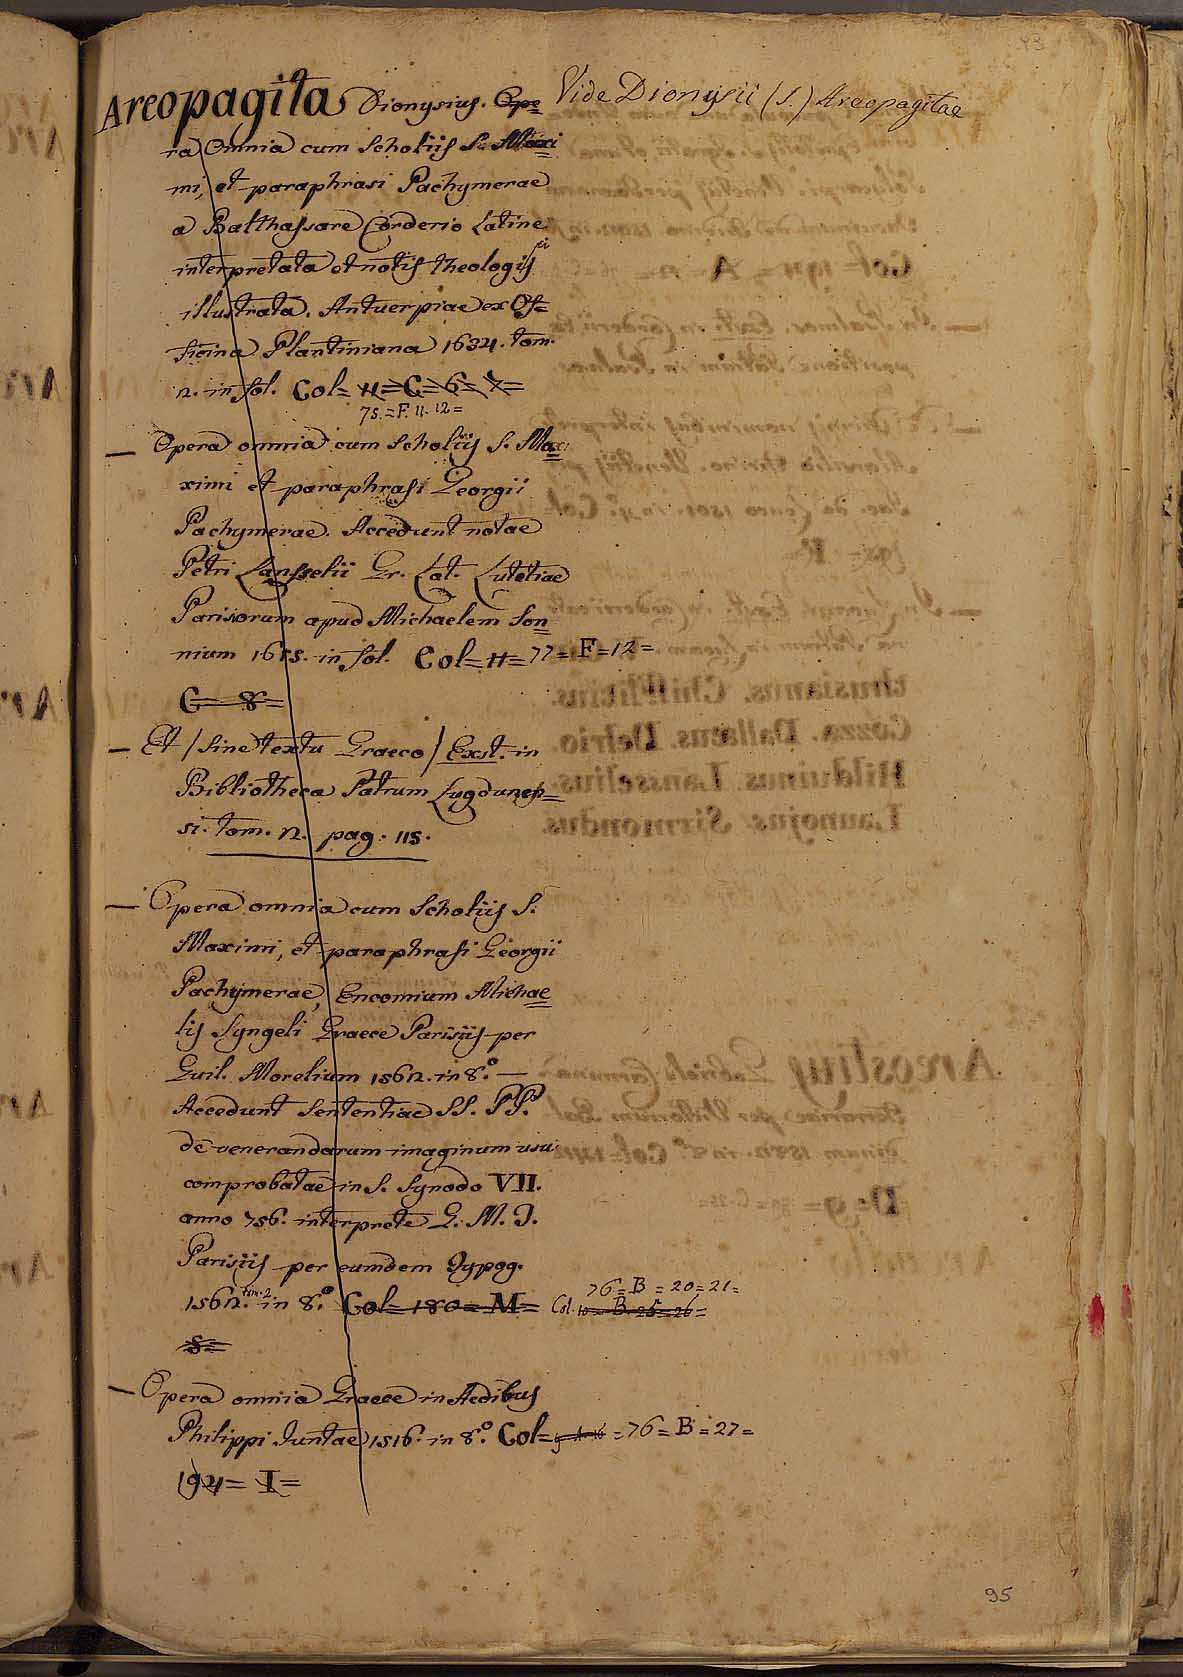 Areopagita Dionysius. Ope= Vide Dionysii (S.) Areopagitae
ra Omnia cum Scholiis S. Maxi
mi, et paraphrasi Pachymerae
a Balthassare Corderio Latine
interpretata et notis theologicis
illustrata. Antuerpiae ex Of=
ficina Plantiniana 1634. tom.
2. in fol. Col= 11=C=6=7=
75.=F. 11. 12=
— Opera omnia cum Scholiis S. Ma=
ximi et paraphrasi Georgii
Pachymerae. Accedunt notae
Petri Lansselii Gr. Lat. Lutetiae
Parisiorum apud Michaelem Son
nium 1655. in fol. Col=11=77=F=12=
C=8=
— Et / sine textu Graeco / Exst. in
Bibliotheca Patrum Lugdunen=
si. tom. 2. pag. 115.
— Opera omnia cum Scholiis S.
Maximi, et paraphrasi Georgii
Pachymerae, Encomium Michae
lis Syngeli Graece Parisiis per
Guil. Morelium 1562. in 8.° —
Accedunt Sententiae SS. PP.
de venerandarum imaginum usu
comprobatae in S. Synodo VII.
anno 756. interprete G. M. T.
Parisiis per eumdem Typog.
76=B=20=21=
1562. tom. 2. in 8.° Col=180=M= Col. 10=B. 25=26=
S=
— Opera omnia Graece in Aedibus
Philippi Juntae 1516. in 8.° Col= =76=B=27=
194=I=
95